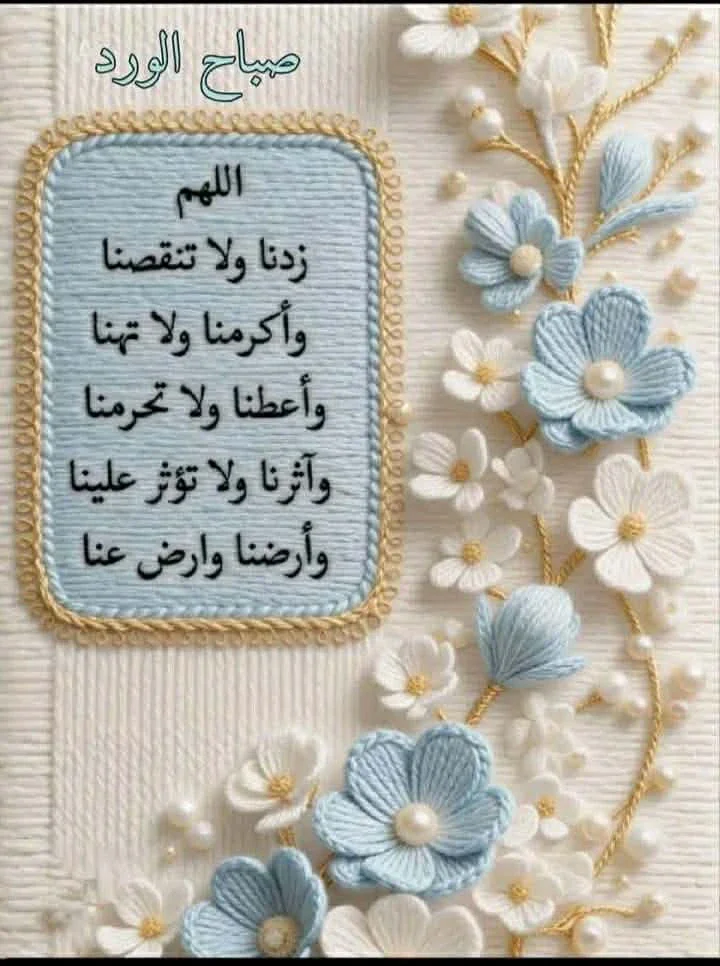 صباح الورد
اللهم
زدنا ولا تنقصنا
وأكرمنا ولا تهنا
وأعطنا ولا تحرمنا
وآثرنا ولا تؤثر علينا
وأرضنا وارض عنا